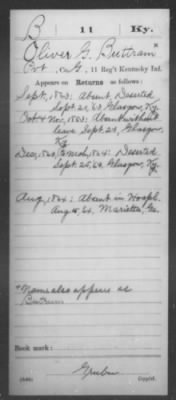 B | 11 | Ky.
Oliver G. Buttram *
Pvt, Co. G, 11 Reg't Kentucky Inf.
Appears on Returns as follows:
Sept, 1863: Absent, Deserted
Sept. 23, '63, Glasgow, Ky.
Oct & Nov, 1863: Absent without
leave Sept. 23, Glasgow,
Ky.
Dec, 1863, to Mch, 1864: Deserted
Sept. 25, '63, Glasgow,
Ky.
Aug, 1864: Absent in Hospl.
Aug 15, '64, Marietta, Ga.
* Name also appears as
Butrum
Book mark:
(646) Copyist.